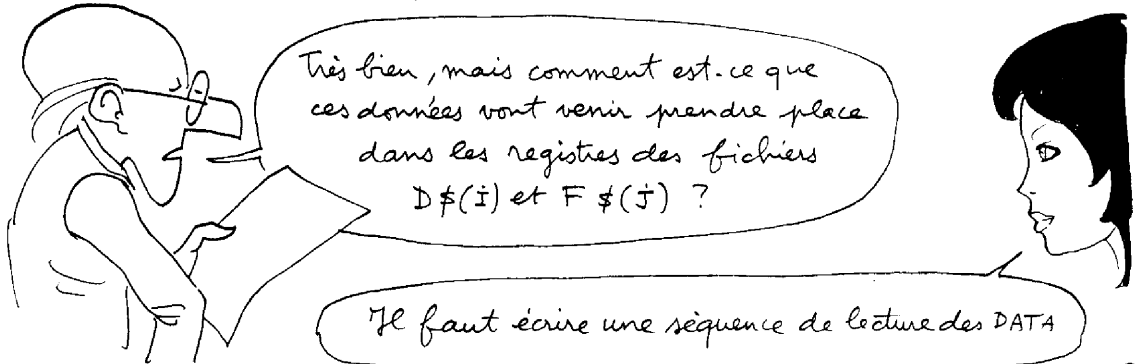 Très bien, mais comment est-ce que
ces données vont venir prendre place
dans les registres des fichiers
D$(i) et F $(j) ?
Il faut écrire une séquence de lecture des DATA